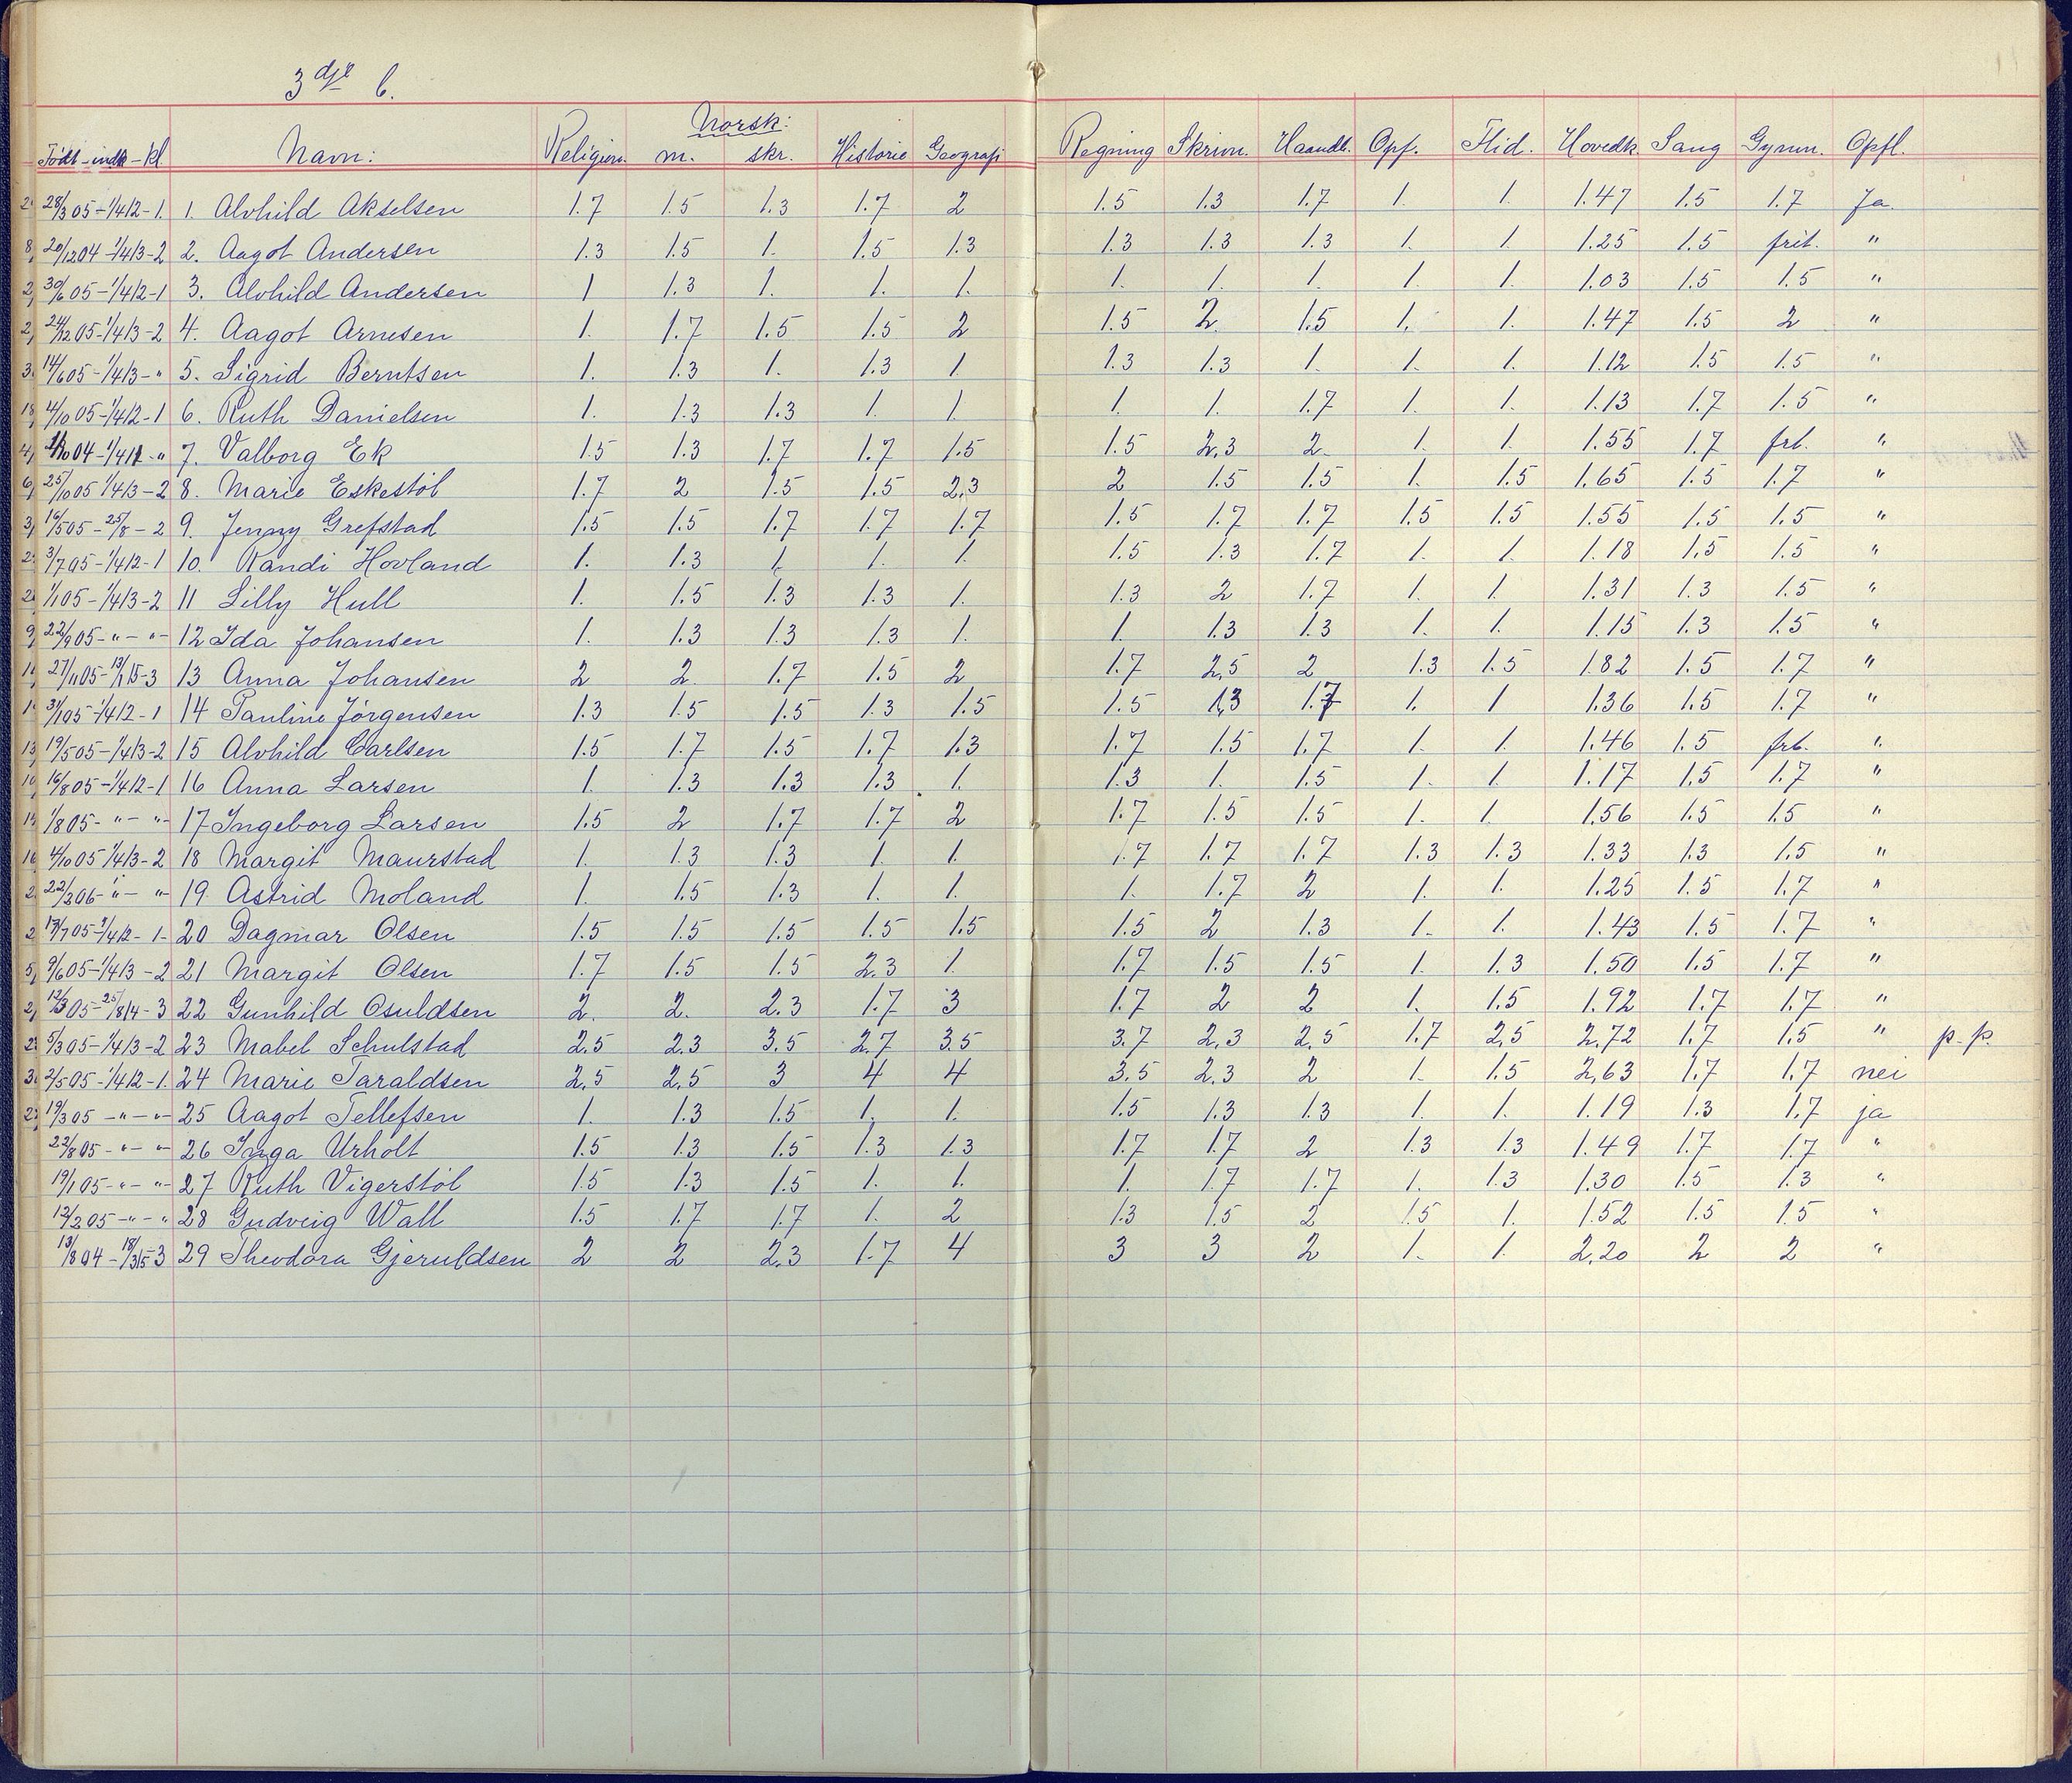 3dje b.
Norsk:
Født - indk - kl. Navn: Religion. m. skr. Historie Geografi Regning Skrivn. Haandb. Opf. Flid. Hovedk. Sang Gymn. Opfl.
28/3 05 - 1/4 12 - 1. 1. Alvhild Akselsen 1.7 1.5 1.3 1.7 2 1.5 1.3 1.7 1. 1. 1.47 1.5 1.7 Ja.
20/12 04 - 1/4 13 - 2 2. Aagot Andersen 1.3 1.5 1. 1.5 1.3 1.3 1.3 1.3 1. 1. 1.25 1.5 frit. "
30/6 05 - 1/4 12 - 1 3. Alvhild Andersen 1 1.3 1. 1. 1. 1. 1. 1. 1. 1. 1.03 1.5 1.5 "
24/12 05 - 1/4 13 - 2 4. Aagot Arnesen 1. 1.7 1.5 1.5 2 1.5 2. 1.5 1. 1. 1.47 1.5 2 "
14/6 05 - 1/4 13 - " 5. Sigrid Berntsen 1. 1.3 1. 1.3 1. 1.3 1.3 1. 1. 1. 1.12 1.5 1.5 "
4/10 05 - 1/4 12 - 1 6. Ruth Danielsen 1. 1.3 1.3 1. 1. 1. 1. 1.7 1. 1. 1.13 1.7 1.5 "
04 - 1/4 - " 7. Valborg Ek 1.5 1.3 1.7 1.7 1.5 1.5 2,3 2. 1. 1. 1.55 1.7 frt. "
25/10 05 1/4 13 - 2 8. Marie Eskestöl 1.7 2 1.5 1.5 2,3 2 1.5 1.5 1. 1.5 1.65 1.5 1.7 "
16/5 05 - 25/8 - 2 9. Jenny Grefstad 1.5 1.5 1.7 1.7 1.7 1.5 1.7 1.7 1.5 1.5 1.55 1.5 1.5 "
3/7 05 - 1/4 12 - 1 10. Randi Hovland 1. 1.3 1. 1. 1. 1.5 1.3 1.7 1. 1. 1.18 1.5 1.5 "
1/1 05 - 1/4 13 - 2 11 Lilly Hull 1. 1.5 1.3 1.3 1. 1.3 2 1.7 1. 1. 1.31 1.3 1.5 "
22/9 05 - " - " - 12 Ida Johansen 1. 1.3 1.3 1.3 1. 1. 1.3 1.3 1. 1. 1.15 1.3 1.5 "
27/11 05 - 13/1 15 - 3 13 Anna Johansen 2 2. 1.7 1.5 2 1.7 2,5 2 1.3 1.5 1.82 1.5 1.7 "
31/1 05 - 1/4 12 - 1 14 Pauline Jörgensen 1.3 1.5 1.5 1.3 1.5 1.5 1,3 1.7 1. 1 1.36 1.5 1.7 "
19/5 05 - 1/4 13 - 2 15 Alvhild Carlsen 1.5 1.7 1.5 1.7 1.3 1.7 1.5 1.7 1. 1. 1.46 1.5 frt. "
16/8 05 - 1/4 12 - 1 16 Anna Larsen 1. 1.3 1.3 1.3 1. 1.3 1. 1.5 1. 1. 1.17 1.5 1.7 "
1/8 05 - " - " - 17 Ingeborg Larsen 1.5 2 1.7 1.7 2 1.7 1.5 1.5 1. 1. 1.56 1.5 1.5 "
4/10 05 1/4 13 - 2 18 Margit Maurstad 1. 1.3 1.3 1. 1. 1.7 1.7 1.7 1.3 1.3 1.33 1.3 1.5 "
22/2 06 - " - " - 19. Astrid Moland 1. 1.5 1.3 1. 1. 1. 1.7 2 1. 1. 1.25 1.5 1.7 "
17/7 05 - 1/4 12 - 1 - 20 Dagmar Olsen 1.5 1.5 1.5 1.5 1.5 1.5 2 1.3 1. 1. 1.43 1.5 1.7 "
9/6 05 - 1/4 13 - 2 21 Margit Olsen 1.7 1.5 1.5 2.3 1. 1.7 1.5 1.5 1. 1.3 1.50 1.5 1.7 "
12/3 05 - 25/8 14 - 3 22 Gunhild Osuldsen 2. 2. 2.3 1.7 3 1.7 2 2 1. 1.5 1.92 1.7 1.7 "
5/3 05 - 1/4 13 - 2 23 Mabel Schulstad 2.5 2.3 3.5 2.7 3.5 3.7 2,3 2,5 1.7 2,5 2,72 1.7 1.5 " p. p.
2/5 05 - 1/4 12 - 1. 24 Marie Taraldsen 2,5 2,5 3 4 4 3.5 2.3 2 1. 1.5 2,63 1.7 1.7 nei
19/3 05 - " - " - 25 Aagot Tellefsen 1. 1.3 1.5 1. 1. 1.5 1.3 1.3 1. 1. 1.19 1.3 1.7 ja
22/8 05 - " - " - 26 Inga Urholt 1.5 1.3 1.5 1.3 1.3 1.7 1.7 2 1.3 1.3 1.49 1.7 1.7 "
19/1 05 - " - " - 27 Ruth Vigerstöl 1.5 1.3 1.5 1. 1. 1. 1.7 1.7 1. 1.3 1.30 1.5 1.3 "
12/2 05 - " - " 28 Gudveig Wall 1.5 1.7 1.7 1. 2 1.3 1.5 2 1.5 1. 1.52 1.5 1.5 "
13/8 04 - 18/3 15 - 3 29 Theodora Gjeruldsen 2 2 2.3 1.7 4 3 3 2 1. 1. 2.20 2 2 "